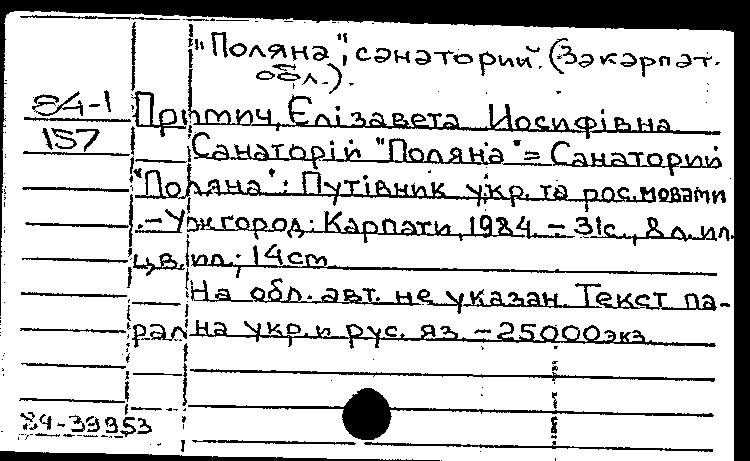 "Поляна", санаторий. (Закарпат.
обл.).
84-1
157
Притич, Єлізавета Иосифівна
Санаторій "Поляна" = Санаторий
"Поляна": Путівник укр. та рос. мовами
.– Ужгород: Карпати, 1984. – 31с., 8 л. ил.
цв. ил.; 14cm
На обл. авт. не указан. Текст па-
рал на укр. и рус. яз. – 25000экз.
84-39953